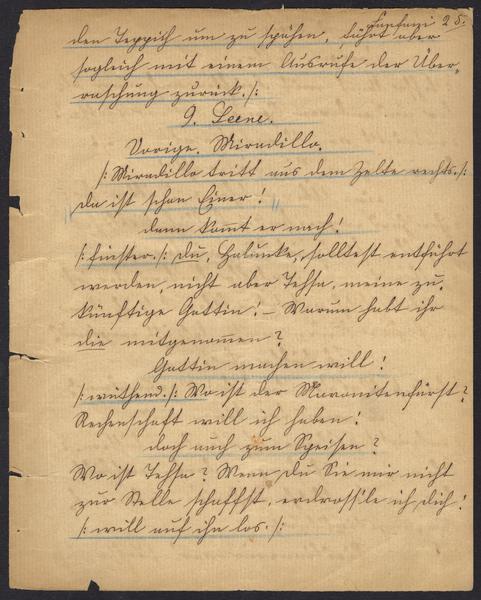 Fanfani 25.
den Teppich um zu spähen, fährt aber
sogleich mit einem Ausrufe der Über-
raschung zurück. /:
9. Scene.
Vorige. Miradillo.
/: Miradillo tritt aus dem Zelte rechts. /:
"da ist schon Einer!"
dann kommt er nach!
/: finster. /: Du, Halunke, solltest entführt
werden, nicht aber Tehsa, meine zu-
künftige Gattin! – Warum habt ihr
die mitgenommen?
Gattin machen will!
/: wüthend. /: Wo ist der Maronitenfürst?
Rechenschaft will ich haben!
doch auch zum Speisen?
Wo ist Tehsa? Wenn du Sie mir nicht
zur Stelle schaffst, erdross'le ich dich!
/: will auf ihn los. /: